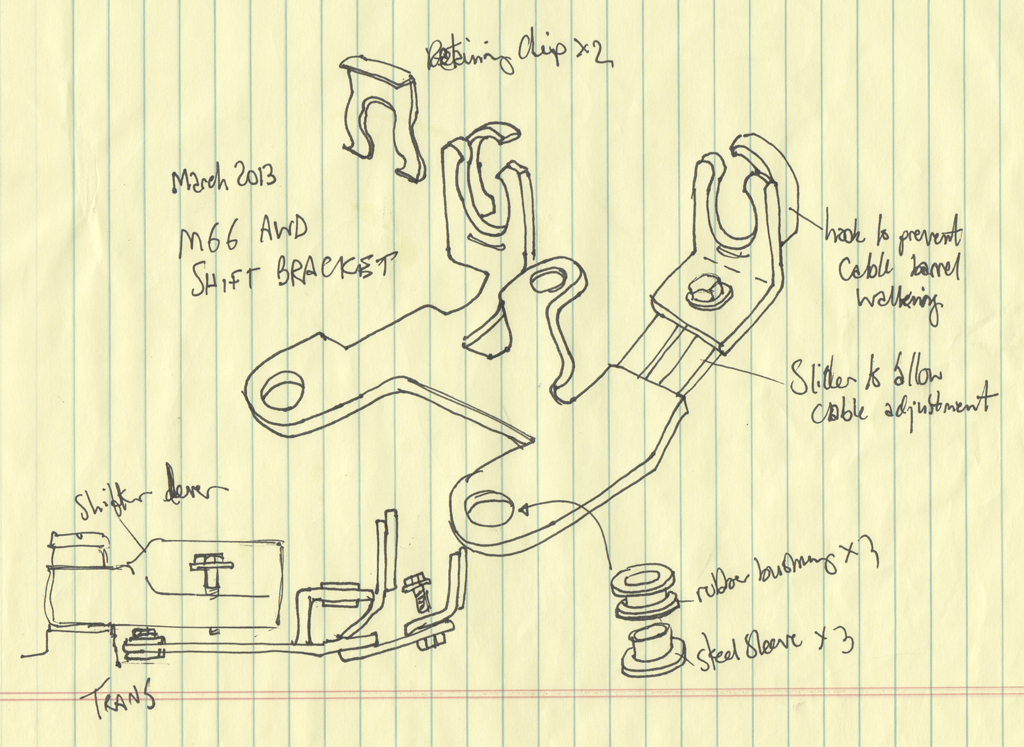 Retaining Clip x2
March 2013
M66 AWD
SHIFT BRACKET
hook to prevent
cable barrel
walking
Slider to allow
cable adjustment
Shifter lever
rubber bushing x3
steel sleeve x3
TRANS